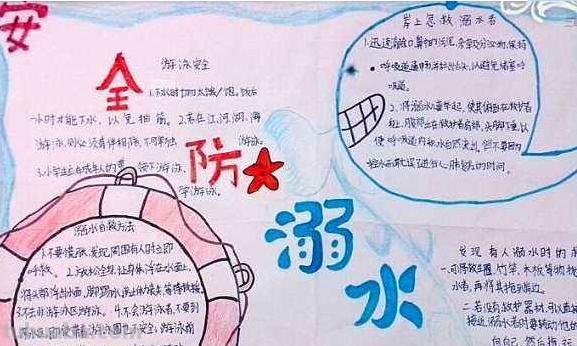 安
全
防
溺
水
游泳安全
1.下水时切勿太饿/饱,饭后
一小时才能下水,以免抽筋。2.若在江,河,湖,海
游泳,则必须有伴相陪,不可单独
游泳。
3.小学生应在成年人的
带领下游泳,
学游泳。
溺水自救方法
1.不要慌张,发现周围有人时立即
呼救。2.放松全身,让身体浮在水面上,
将头部浮出水面,
3.
4.不会游泳者,不要到
游泳前
岸上急救溺水者
1.迅速清除口鼻中的污泥,杂草及分泌物,保持
呼吸道通畅,并拉出舌头,以避免堵塞呼
吸道。
2.将溺水者举起,使其俯卧在救护者
肩上,腹部紧贴救护者肩部,头脚下垂,以
便呼吸道内积水自然流出,但不要因为
的时间。
发现有人溺水时的
一.可将救生圈,竹竿,木板等物抛
水者,再将其拖到岸边。
二.若没有救护器材,可以直接
接近溺水者时要转动他的